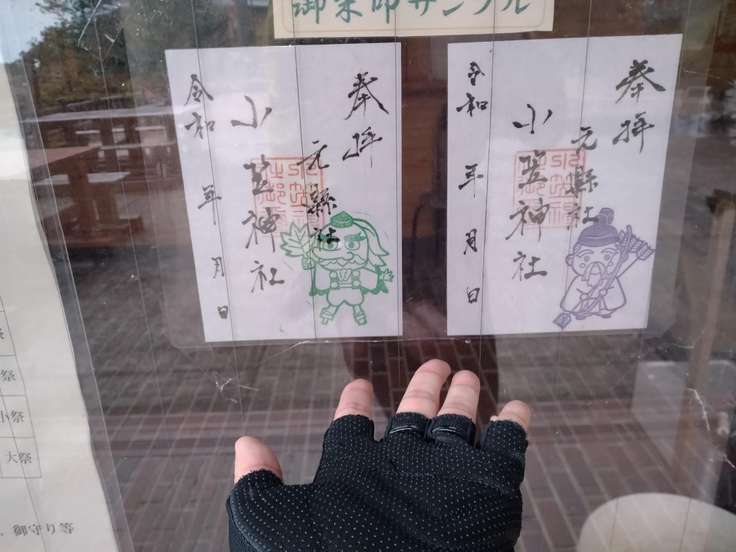 御朱印サンプル
奉拝
元縣社
小笠神社
令和 年 月 日
奉拝
元縣社
小笠神社
令和 年 月 日
祭
祭
小祭
大祭
、御守り等